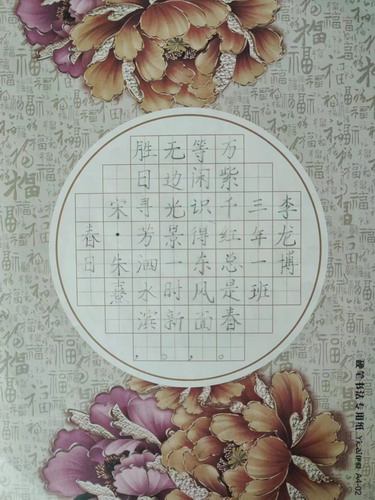 春日
宋·朱熹
胜日寻芳泗水滨，
无边光景一时新。
等闲识得东风面，
万紫千红总是春。
三年一班
李龙博
硬笔书法专用纸 A4-02